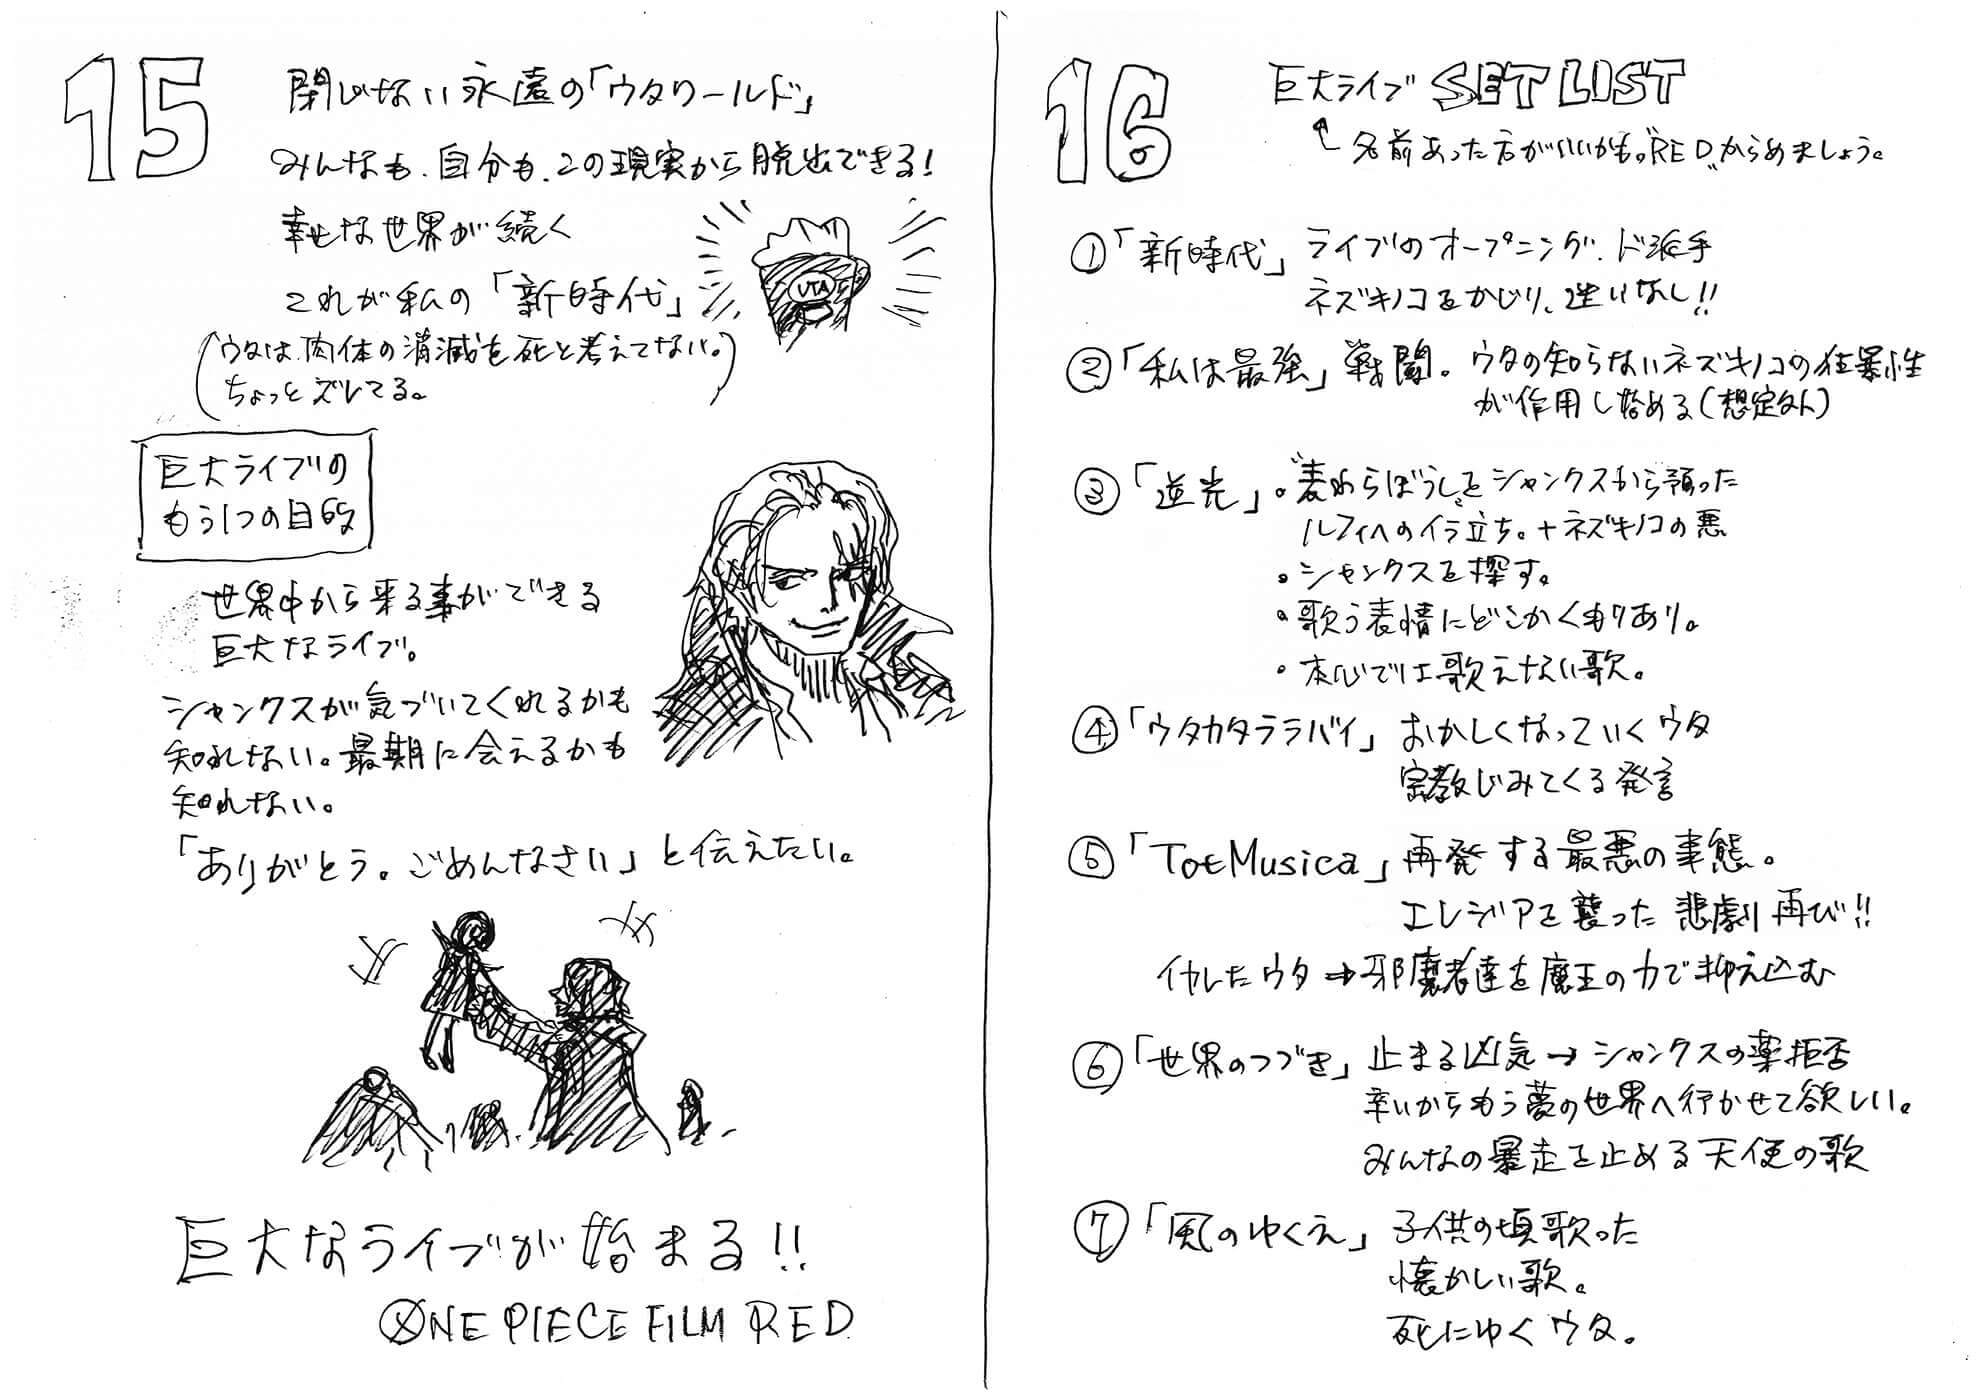 15
閉じない永遠の「ウタワールド」
みんなも、自分も、この現実から脱出できる!
幸せな世界が続く
これが私の「新時代」
UTA
(ウタは、肉体の消滅を死と考えてない。)
ちょっとズレてる。
巨大ライブの
もう1つの目的
世界中から来る事ができる
巨大なライブ。
シャンクスが気づいてくれるかも
知れない。最期に会えるかも
知れない。
「ありがとう。ごめんなさい」と伝えたい。
巨大なライブが始まる!!
ONE PIECE FILM RED
16
巨大ライブ SET LIST
名前あった方がいいかも。"RED"からめましょう。
①「新時代」ライブのオープニング、ド派手
ネズキノコをかじり、迷いなし!!
②「私は最強」戦闘。ウタの知らないネズキノコの狂暴性
が作用し始める(想定外)
③「逆光」。"麦わらぼうし"をシャンクスから預った
ルフィへのイラ立ち。+ネズキノコの悪
・シャンクスを探す。
・歌う表情にどこかくもりあり。
・本心では歌えない歌。
④「ウタカタララバイ」おかしくなっていくウタ
宗教じみてくる発言
⑤「Tot Musica」再発する最悪の事態。
エレジアを襲った悲劇再び!!
イカれたウタ→邪魔者達を魔王の力で抑え込む
⑥「世界のつづき」止まる凶気→シャンクスの薬拒否
辛いからもう夢の世界へ行かせて欲しい。
みんなの暴走を止める天使の歌
⑦「風のゆくえ」子供の頃歌った
懐かしい歌。
死にゆくウタ。